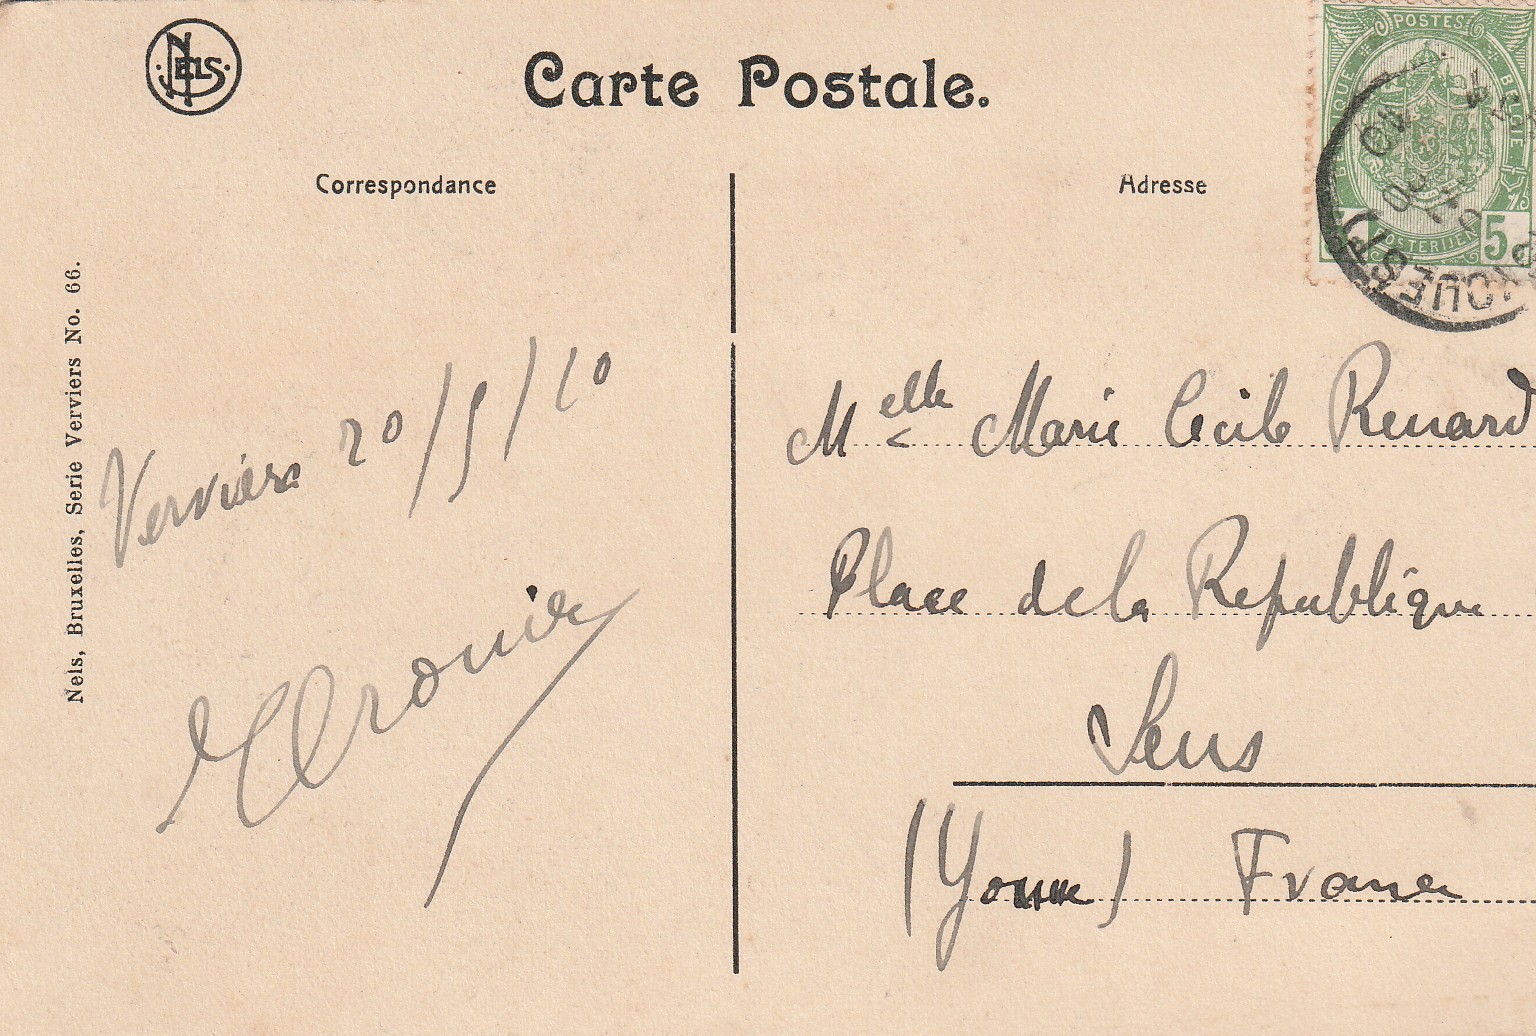 NELS
Carte Postale.
POSTES
BELGIQUE BELGIE
POSTERIJEN
5
OUEST
Correspondance
Adresse
Nels, Bruxelles, Serie Verviers No. 66.
Verviers 20/9/10
Melle Marie Cécile Renard
Place de la Republique
Sens
(Yonne) France